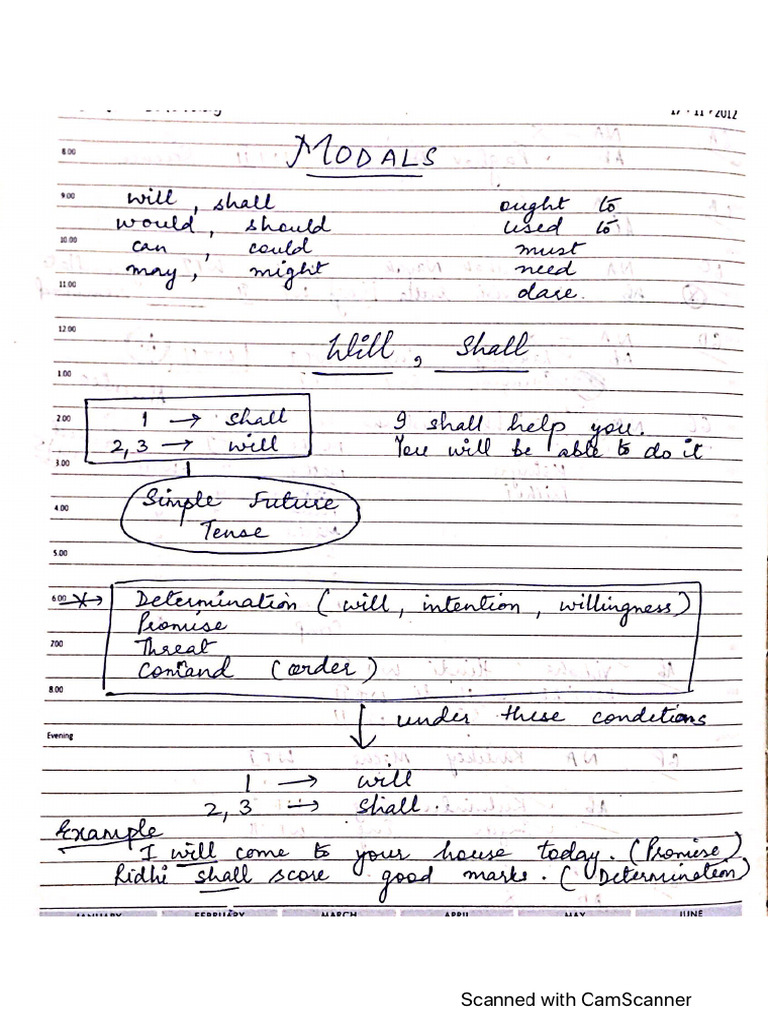 17 · 11 · 2012
MODALS
8.00
9.00 will , shall ought to
would , should used to
10.00 can , could must
may , might need
11.00 dare.
12.00
Will , Shall
1.00
2.00 1 → shall I shall help you.
2,3 → will You will be able to do it
3.00
Simple Future
4.00
Tense
5.00
6.00 Determination ( will , intention , willingness )
Promise
7.00 Threat
Command (order)
8.00
under these conditions
Evening
1 → will
2,3 → shall.
Example
I will come to your house today. (Promise)
Ridhi shall score good marks. (Determination)
JANUARY FEBRUARY MARCH APRIL MAY JUNE
Scanned with CamScanner